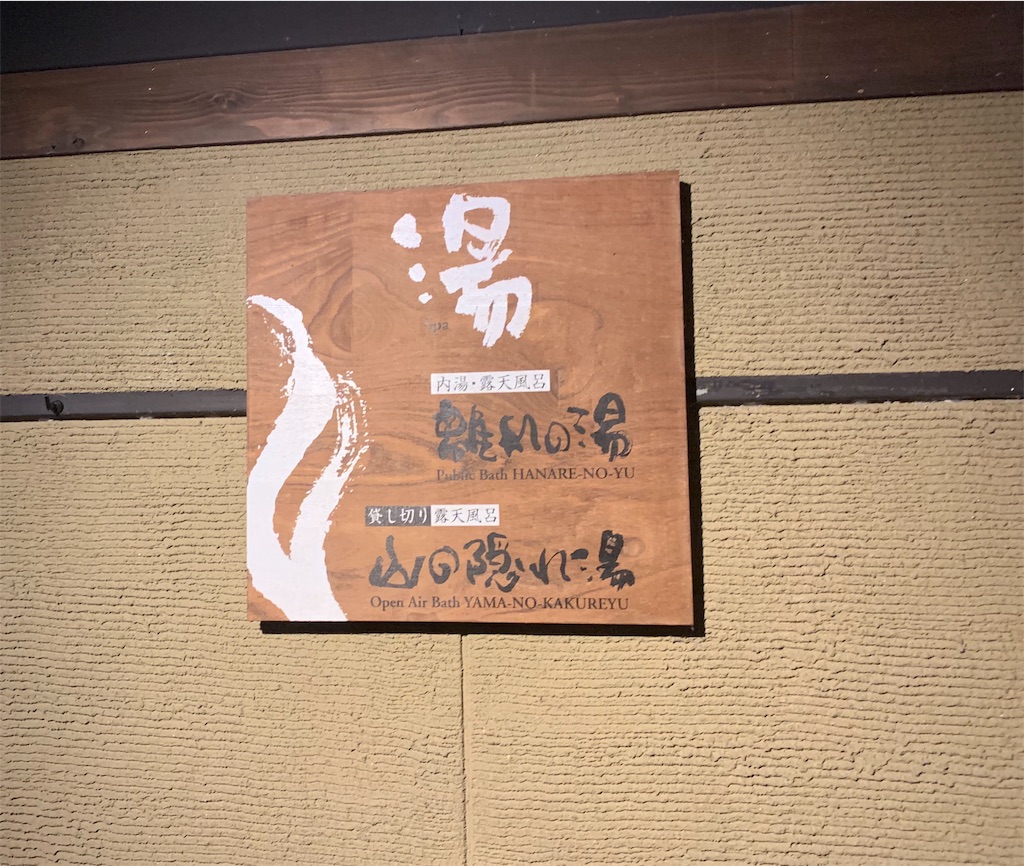 湯
Spa
内湯・露天風呂
離れの湯
Public Bath HANARE-NO-YU
貸し切り露天風呂
山の隠れ湯
Open Air Bath YAMA-NO-KAKUREYU